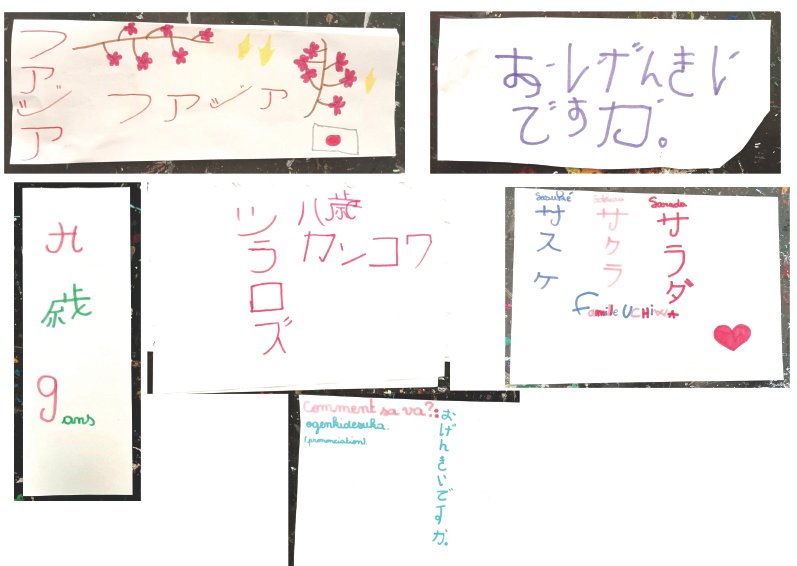 ファジア
ファジア
おげんきい
ですか。
九
歳
9 ans
ソラロズ
八歳
カンコワ
Sasuké
サスケ
Sakura
サクラ
Sarada
サラダ
Famille UCHiwA
comment sa va?:
ogenkidesuka.
(prononciation).
おげんきいですか。